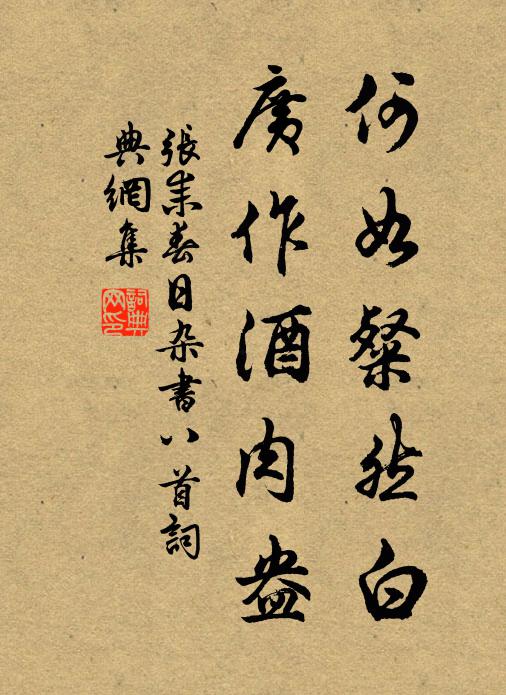 何如粲然白
廣作酒肉盎
張耒春日杂書八首詞
典網集
詞典網印